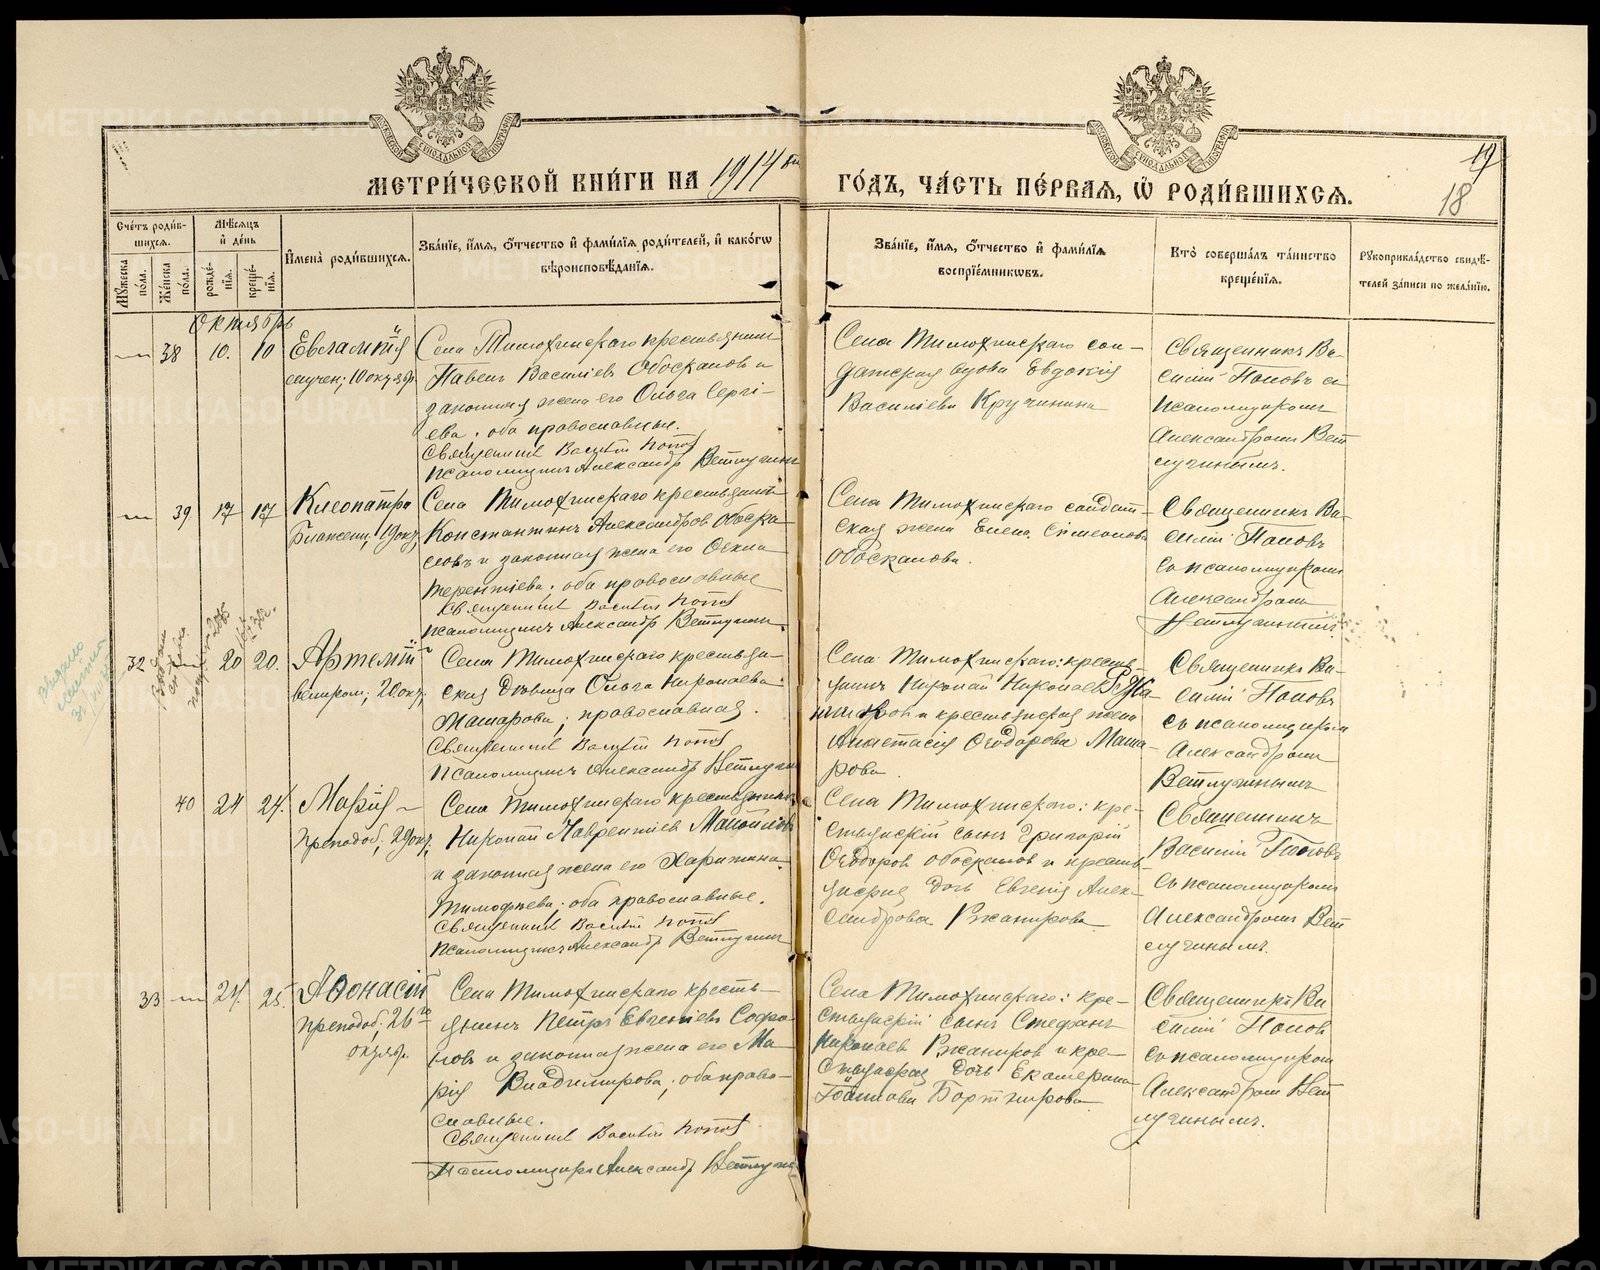 МЕТРИ́ЧЕСКОЙ КНИ́ГИ НА 1914 ый
ГО́ДЪ, ЧА́СТЬ ПЕ́РВАЯ, Ѽ РОДИ́ВШИХСЯ.
19
18
Сче́тъ роди́в-
шихся.
Мѣ́сяцъ
и҆ де́нь
Мꙋ́жеска
по́ла.
Же́нска
по́ла.
рожде́-
нїя.
креще́-
нїя.
И҆мена̀ роди́вшихся.
Зва́нїе, и҆́мя, ѻ҆́тчество и҆ фами́лїя роди́телей, и҆ како́гѡ
вѣроисповѣ́данїя.
Зва́нїе, и҆́мя, ѻ҆́тчество и҆ фами́лїя
воспрїе́мникѡвъ.
Кто̀ соверша́лъ та́инство
креще́нїя.
Рꙋкоприкла́дство свидѣ́-
телей за́писи по жела́нїю.
Октябрь
— 38 10. 10 Евлампія
мучен; 10 октяб.
Села Тимохинскаго крестьянинъ
Павелъ Василіевъ Обоскаловъ и
законная жена его Ольга Сергі-
ева; оба православные.
Священникъ Василій Поповъ
Псаломщикъ Александръ Ветлугинъ
Села Тимохинскаго сол-
датская вдова Евдокія
Василіева Кручинина
Священникъ Ва-
силій Поповъ съ
псаломщикомъ
Александромъ Вет
лугинымъ.
— 39 17 17 Клеопатра
Блажен; 19 окт;
Села Тимохинскаго крестьянинъ
Константинъ Александровъ Обоска-
ловъ и законная жена его Ѳекла
Терентіева; оба православные
Священникъ Василій Поповъ
Псаломщикъ Александръ Ветлугинъ
Села Тимохинскаго солдат-
ская жена Елена Симеонова
Обоскалова.
Священникъ Ва-
силій Поповъ
съ псаломщикомъ
Александромъ
Ветлугинымъ
32 — 20 20. Артемій
великом; 20 окт;
Села Тимохинскаго крестьян-
ская дѣвица Ольга Николаева
Машарова; православная.
Священникъ Василій Поповъ
Псаломщикъ Александръ Ветлугинъ
Села Тимохинскаго: кресть-
янинъ Николай Николаевъ Ржа-
никовъ и крестьянская жена
Анастасія Ѳеодорова Маша-
рова.
Священникъ Ва-
силій Поповъ
съ псаломщикомъ
Александромъ
Ветлугинымъ
40 24 24. Марія
Преподоб; 29 окт;
Села Тимохинскаго крестьянинъ
Николай Лаврентіевъ
и законная жена его Харитина
Тимофеева; оба православные.
Священникъ Василій Поповъ
Псаломщикъ Александръ Ветлугинъ
Села Тимохинскаго: кре-
стьянскій сынъ Григорій
Ѳеодоровъ Обоскаловъ и кресть-
янская дочь Евгенія Алек-
сандрова Ржаникова
Священникъ
Василій Поповъ
съ псаломщикомъ
Александромъ Вет
лугинымъ.
33 — 24 25 Аѳонасій
Преподоб; 26 го
октяб.
Села Тимохинскаго кресть-
янинъ Петръ Евгеніевъ Софро-
новъ и законная жена его Ма-
рія Владимирова; оба право-
славные.
Священникъ Василій Поповъ
Псаломщикъ Александръ Ветлугинъ
Села Тимохинскаго: кре-
стьянскій сынъ Стефанъ
Николаевъ Ржаниковъ и кре-
стьянская дочь Екатерина
Іоаннова Бортникова
Священникъ Ва-
силій Поповъ
съ псаломщикомъ
Александромъ Вет
лугинымъ.
METRIKI.GASO-URAL.RU